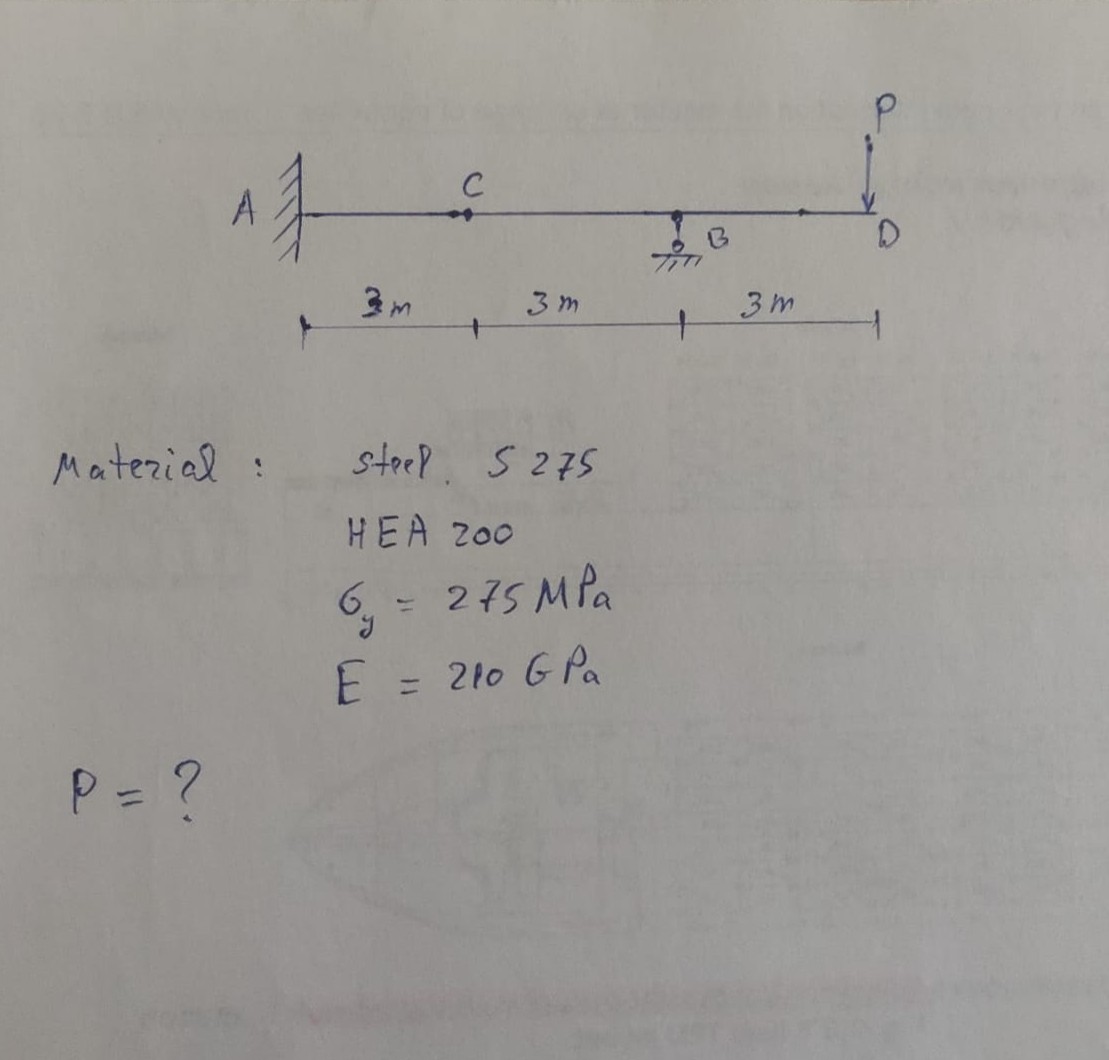 P
C
A
B
D
3m 3m 3m
Material : steel. S 275
HEA 200
σy = 275 MPa
E = 210 GPa
P = ?